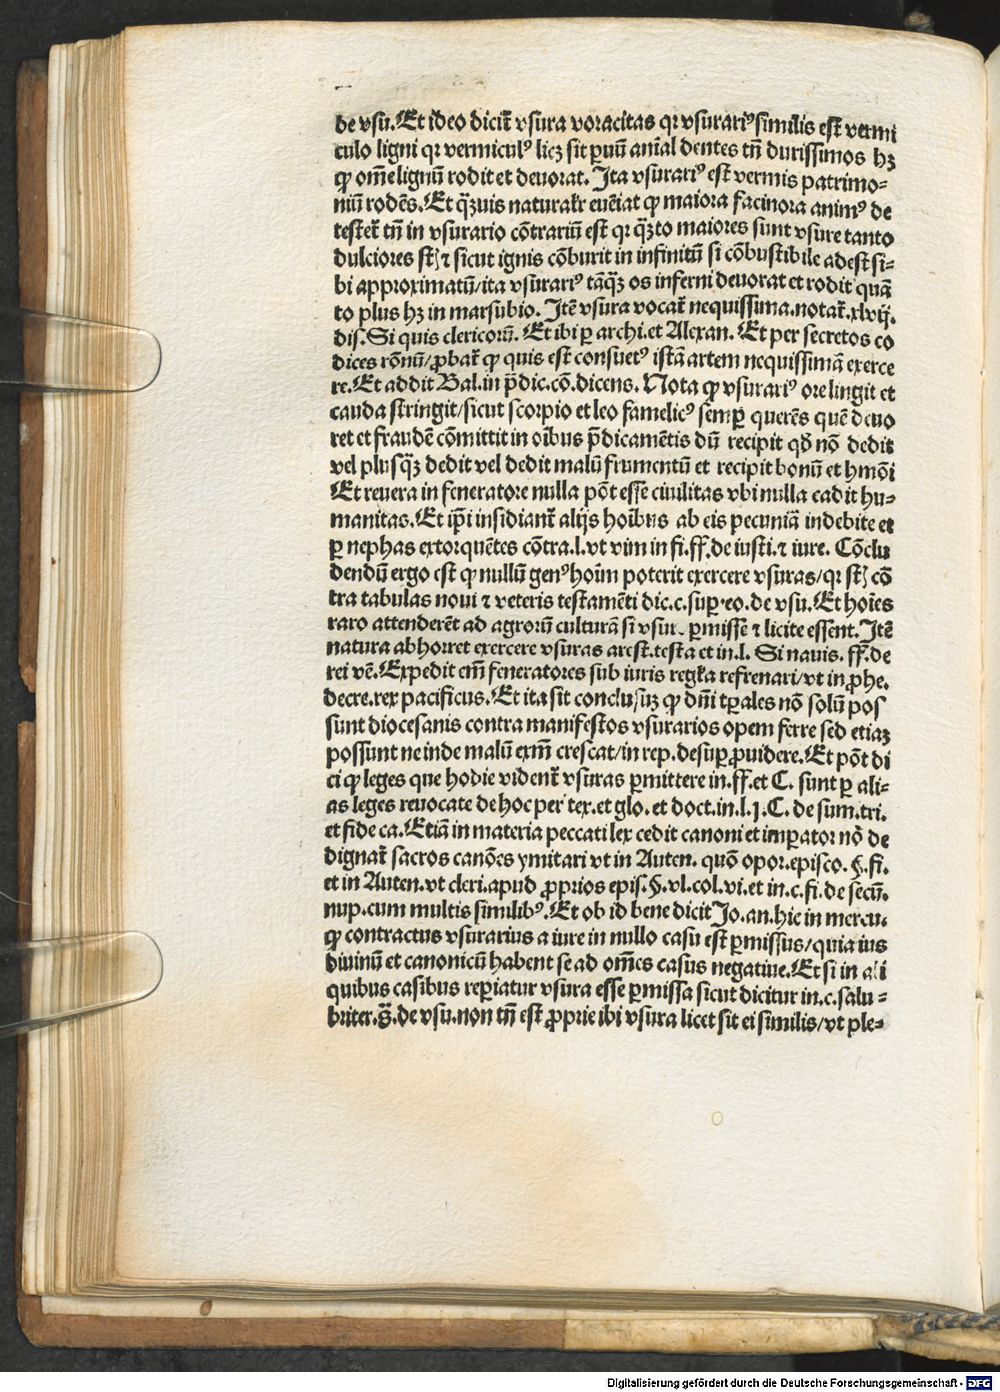 de vsu. Et ideo dicit᷑ vsura voracitas qꝛ vsurariꝰ similis est vermi
culo ligni qꝛ vermiculꝰ licꝫ sit ꝑuū aīal dentes tn̄ durissimos hꝫ
ꝙ om̄e lignū rodit et deuorat. Ita vsurariꝰ est vermis patrimo⸗
niū rodēs. Et qͣꝫuis naturalr̄ eueīat ꝙ maiora facinora animꝰ de
testet᷑ tn̄ in vsurario cōtrariū est qꝛ qͣꝫto maiores sunt vsure tanto
dulciores st̄ ⁊ sicut ignis cōburit in infinitū si cōbustibile adest si⸗
bi approximatū/ita vsurariꝰ tāqͣꝫ os inferni deuorat et rodit quā
to plus hꝫ in marsubio. Itē vsura vocat᷑ nequissima.notat᷑.xlvij.
dis. Si quis clericorū. Et ibi ꝑ archi.et Alexan. Et per secretos co
dices rōnū/ꝓbat᷑ ꝙ quis est consuetꝰ istā artem nequissimā exerce
re. Et addit Bal.in p̄dic.cō.dicens. Nota ꝙ vsurariꝰ ore lingit et
cauda stringit/sicut scorpio et leo famelicꝰ semꝑ querēs quē deuo
ret et fraudē cōmittit in oībus p̄dicamētis dū recipit qđ nō dedit
vel plusqͣꝫ dedit vel dedit malū frumentū et recipit bonū et hmōi
Et reuera in feneratore nulla pōt esse ciuilitas vbi nulla cadit hu⸗
manitas. Et ip̄i insidiant᷑ alijs hoībus ab eis pecuniā indebite et
ꝑ nephas extorquētes cōtra.l.vt vim in fi.ff.de iusti.⁊ iure. Cōclu
dendū ergo est ꝙ nullū genꝰ hoīm poterit exercere vsuras/qꝛ st̄ cō
tra tabulas noui ⁊ veteris testamēti dic.c.suꝑ.eo.de vsu. Et hoīes
raro attenderēt ad agrorū culturā si vsur. ꝑmisse ⁊ licite essent. Itē
natura abhorret exercere vsuras arest.testa et in.l. Si nauis. ff.de
rei vē. Expedit em̄ feneratores sub iuris regl̄a refrenari/vt in ꝓhe.
decre.rex pacificus. Et ita sit conclusuꝫ ꝙ dn̄i tꝑales nō solū pos
sunt diocesanis contra manifestos vsurarios opem ferre sed etiaꝫ
possunt ne inde malū exm̄ crescat/in rep.desuꝑ ꝓuidere. Et pōt di
ci ꝙ leges que hodie vident᷑ vsuras ꝑmittere in.ff.et C. sunt ꝑ ali⸗
as leges reuocate de hoc per tex.et glo.et doct.in.l.j.C. de sum.tri.
et fide ca. Etiā in materia peccati lex cedit canoni et imꝑator nō de
dignat᷑ sacros canōes ymitari vt in Auten. quō opor.episco. §.fi.
et in Auten.vt cleri.apud ꝓprios epis.§.vl.col.vi.et in.c.fi.de secū.
nup.cum multis similibꝰ. Et ob id bene dicit Jo.an.hie in mercu.
ꝙ contractus vsurarius a iure in nullo casu est ꝑmissus/quia ius
diuinū et canonicū habent se ad om̄es casus negatiue. Et si in ali
quibus casibus reꝑiatur vsura esse ꝑmissa sicut dicitur in.c.salu⸗
briter.§.de vsu.non tn̄ est ꝓprie ibi vsura licet sit ei similis/vt ple⸗
Digitalisierung gefördert durch die Deutsche Forschungsgemeinschaft - DFG